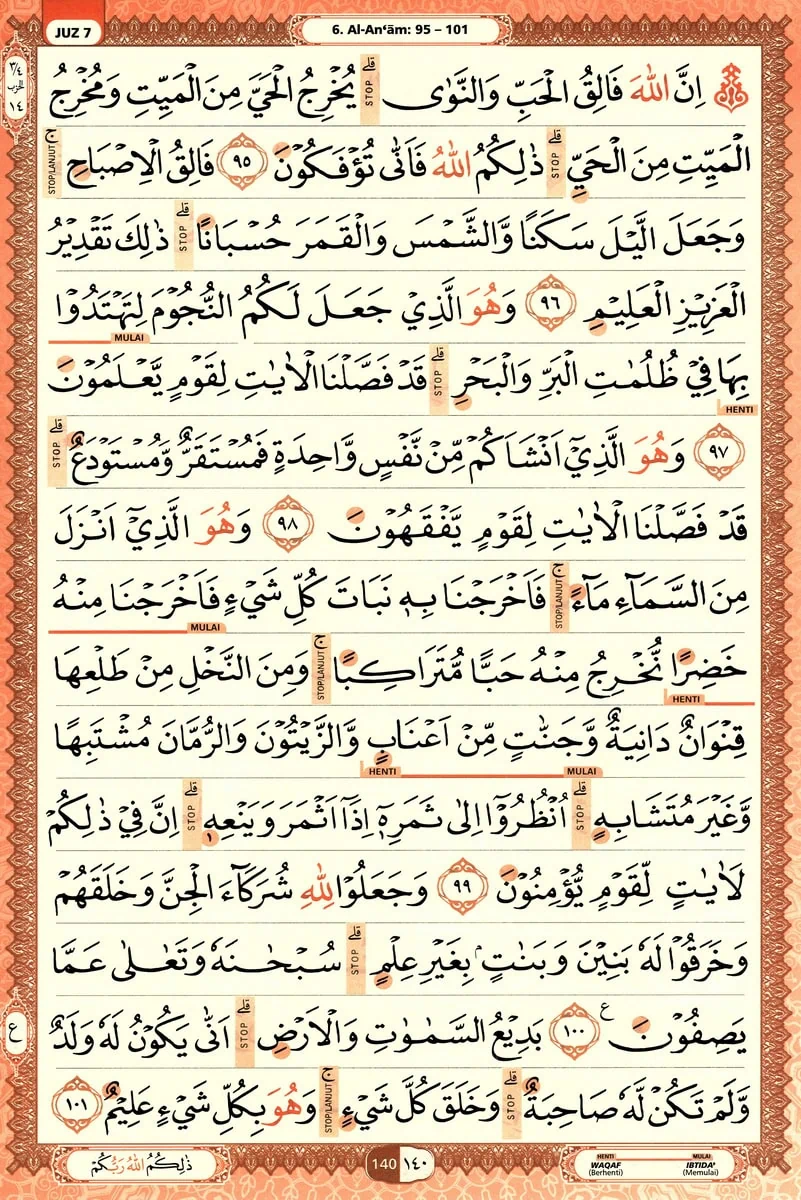 JUZ 7
6. Al-An‘ām: 95 – 101
٣/٤
الحزب
١٤
اِنَّ اللّٰهَ فَالِقُ الْحَبِّ وَالنَّوٰى ۗ STOP يُخْرِجُ الْحَيَّ مِنَ الْمَيِّتِ وَمُخْرِجُ
الْمَيِّتِ مِنَ الْحَيِّ ۗ STOP ذٰلِكُمُ اللّٰهُ فَاَنّٰى تُؤْفَكُوْنَ ٩٥ فَالِقُ الْاِصْبَاحِ ۚ STOP/LANJUT
وَجَعَلَ الَّيْلَ سَكَنًا وَّالشَّمْسَ وَالْقَمَرَ حُسْبَانًا ۗ STOP ذٰلِكَ تَقْدِيْرُ
الْعَزِيْزِ الْعَلِيْمِ ٩٦ وَهُوَ الَّذِيْ جَعَلَ لَكُمُ النُّجُوْمَ لِتَهْتَدُوْا
MULAI
بِهَا فِيْ ظُلُمٰتِ الْبَرِّ وَالْبَحْرِ ۗ STOP قَدْ فَصَّلْنَا الْاٰيٰتِ لِقَوْمٍ يَّعْلَمُوْنَ
HENTI
٩٧ وَهُوَ الَّذِيْٓ اَنْشَاَكُمْ مِّنْ نَّفْسٍ وَّاحِدَةٍ فَمُسْتَقَرٌّ وَّمُسْتَوْدَعٌ ۗ STOP
قَدْ فَصَّلْنَا الْاٰيٰتِ لِقَوْمٍ يَّفْقَهُوْنَ ٩٨ وَهُوَ الَّذِيْٓ اَنْزَلَ
مِنَ السَّمَاۤءِ مَاۤءً ۚ STOP/LANJUT فَاَخْرَجْنَا بِهٖ نَبَاتَ كُلِّ شَيْءٍ فَاَخْرَجْنَا مِنْهُ
MULAI
خَضِرًا نُّخْرِجُ مِنْهُ حَبًّا مُّتَرَاكِبًا ۚ STOP/LANJUT وَمِنَ النَّخْلِ مِنْ طَلْعِهَا
HENTI
قِنْوَانٌ دَانِيَةٌ وَّجَنّٰتٍ مِّنْ اَعْنَابٍ وَّالزَّيْتُوْنَ وَالرُّمَّانَ مُشْتَبِهًا
HENTI MULAI
وَّغَيْرَ مُتَشَابِهٍ ۗ STOP اُنْظُرُوْٓا اِلٰى ثَمَرِهٖٓ اِذَآ اَثْمَرَ وَيَنْعِهٖ ۗ STOP اِنَّ فِيْ ذٰلِكُمْ
لَاٰيٰتٍ لِّقَوْمٍ يُّؤْمِنُوْنَ ٩٩ وَجَعَلُوْا لِلّٰهِ شُرَكَاۤءَ الْجِنَّ وَخَلَقَهُمْ
وَخَرَقُوْا لَهٗ بَنِيْنَ وَبَنٰتٍۢ بِغَيْرِ عِلْمٍ ۗ STOP سُبْحٰنَهٗ وَتَعٰلٰى عَمَّا
يَصِفُوْنَ ࣖ ١٠٠ بَدِيْعُ السَّمٰوٰتِ وَالْاَرْضِ ۗ STOP اَنّٰى يَكُوْنُ لَهٗ وَلَدٌ
ع
وَّلَمْ تَكُنْ لَّهٗ صَاحِبَةٌ ۗ STOP وَخَلَقَ كُلَّ شَيْءٍ ۚ STOP/LANJUT وَهُوَ بِكُلِّ شَيْءٍ عَلِيْمٌ ١٠١
ذٰلِكُمُ اللّٰهُ رَبُّكُمْ
140 ١٤٠
HENTI MULAI
WAQAF IBTIDA'
(Berhenti) (Memulai)